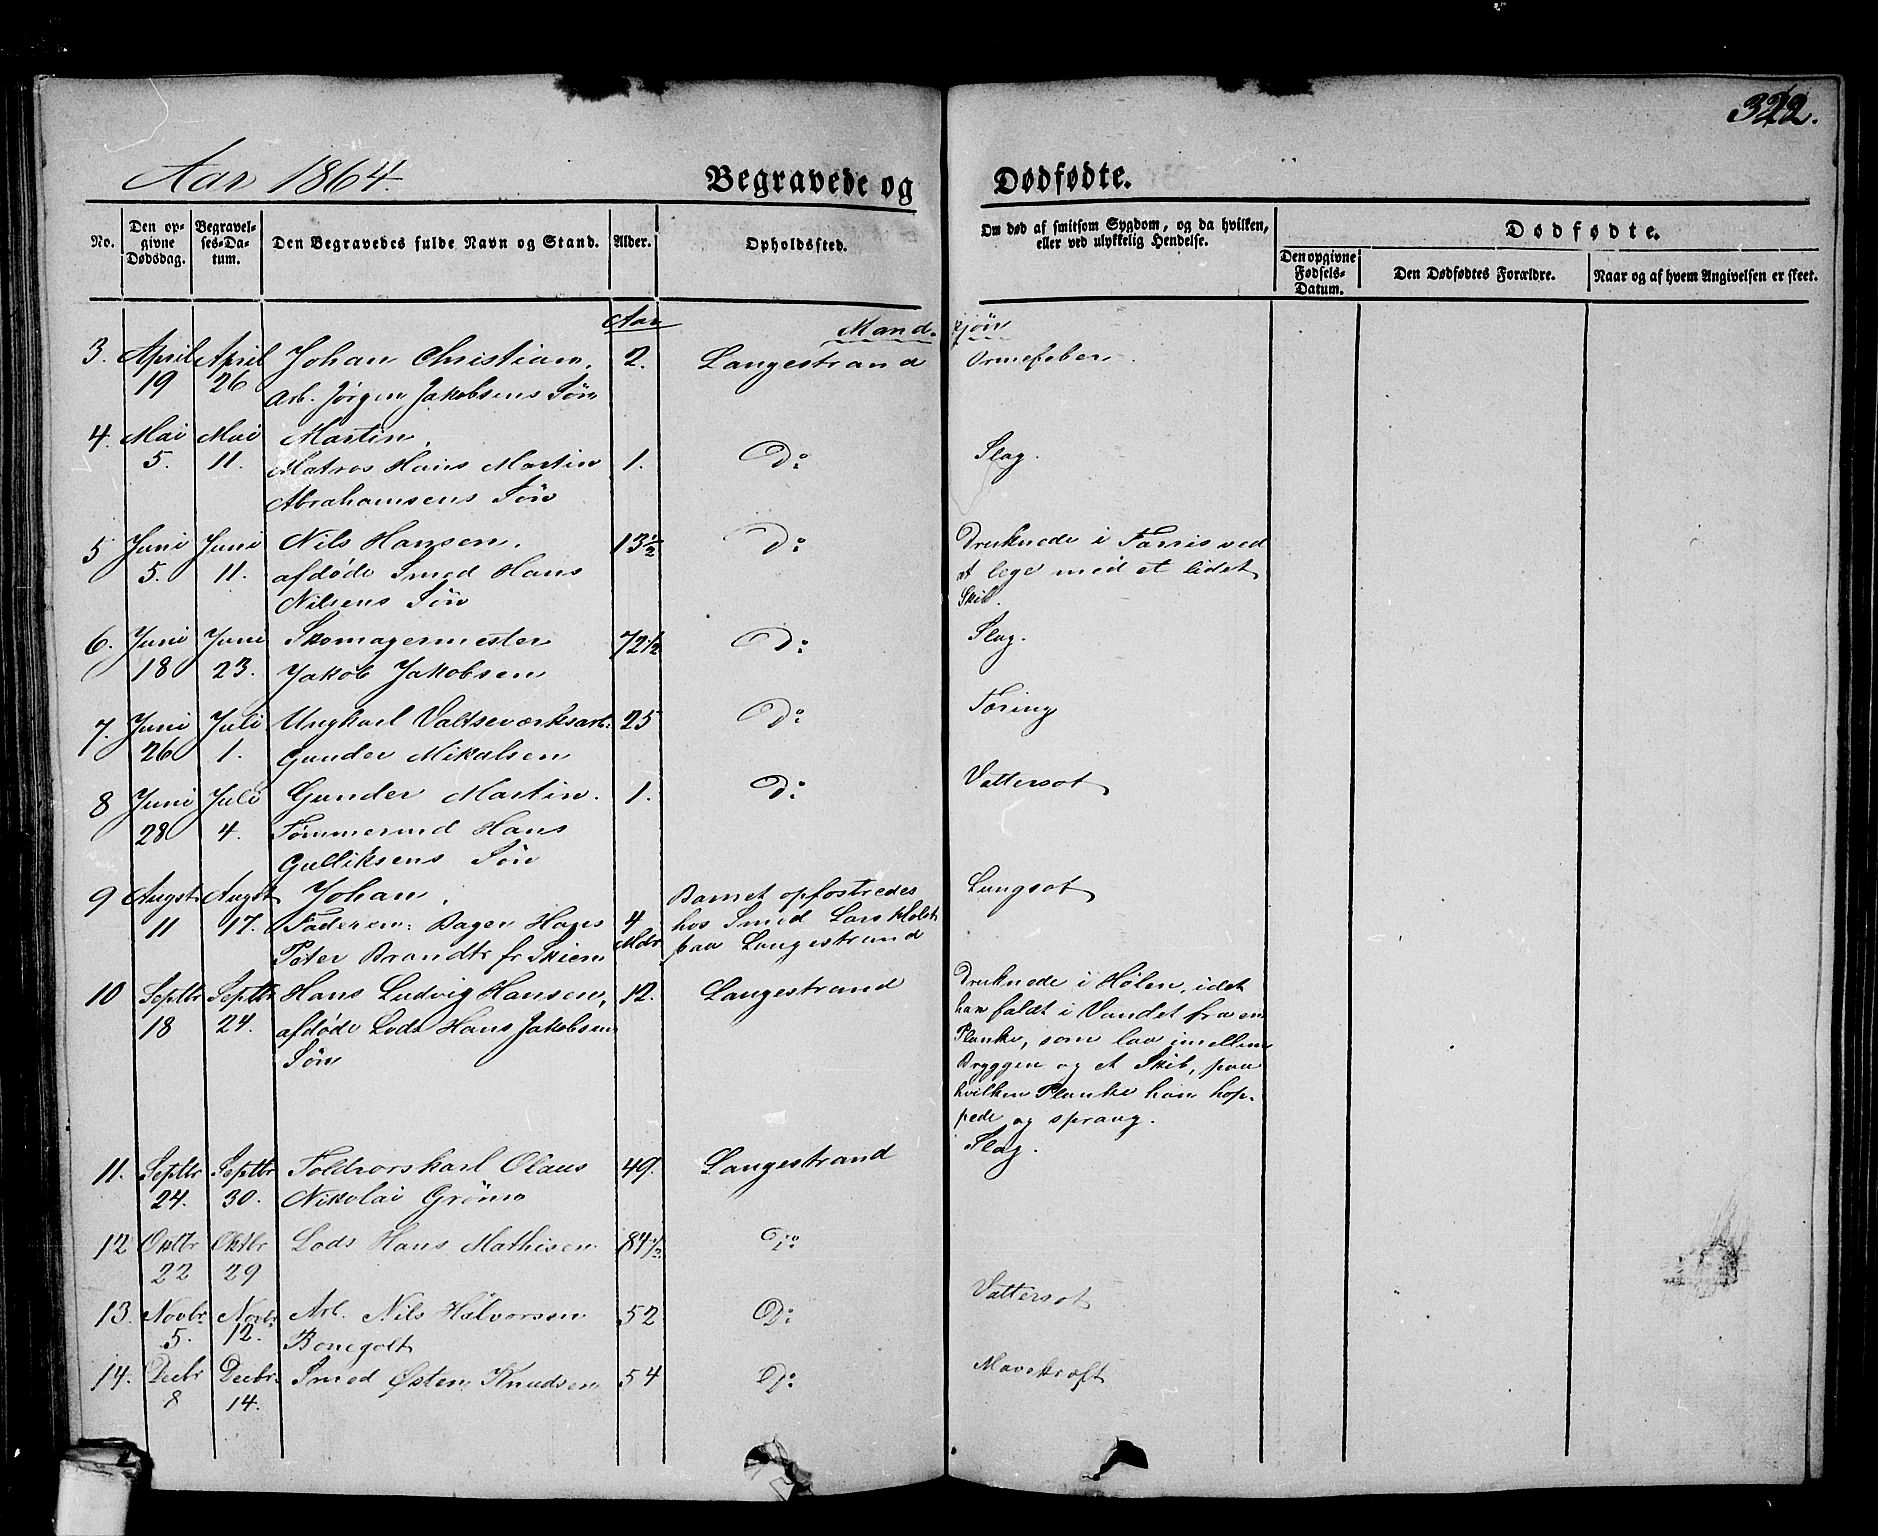 322.
Aar 1864.
Begravede og Dødfødte.
No.
Den op-
givne
Dødsdag.
Begravel-
ses-Da-
tum.
Den Begravedes fulde Navn og Stand.
Alder.
Opholdsted.
Om død af smitsom Sygdom, og da hvilken,
eller ved ulykkelig Hendelse.
Dødfødte.
Den opgivne
Fødsels-
Datum.
Den Dødfødtes Forældre.
Naar og af hvem Angivelsen er skeet.
Aar
Mandkjøn
3. April 19 April 26 Johan Christian, 2. Langestrand Ormefeber
Arb. Jørgen Jakobsens Søn
4. Mai 5. Mai 11. Martin,
Matros Hans Martin 1. Do Slag.
Abrahamsens Søn
5 Juni 5. Juni 11. Nils Hansen, 13 1/2 Do Druknede i Farris ved
afdøde Smed Hans at lege med et lidet
Nilsens Søn Skib.
6. Juni 18 Juni 23. Skomagermester 72 1/2 Do Slag.
Jakob Jakobsen
7. Juni 26 Juli 1. Ungkarl Valtseværksarb: 25 Do Tæring
Gunder Mikalsen
8 Juni 28 Juli 4. Gunder Martin. 1. Do Vattersot
Tømmermd Hans
Gulliksens Søn
9 Augst 11 Augst 17. Johan, Barnet opfostredes Lungsot
Faderen: Bager Hans 4 hos Smed Lars Holst
Peter Brandt fr Skien Mdr paa Langestrand
10 Septbr 18 Septbr 24. Hans Ludvig Hansen, 12. Langestrand Druknede i Hølen, idet
afdøde Lods Hans Jakobsens han faldt i Vandet fra en
Søn Planke, som laa imellem
Bryggen og et Skib, paa
hvilken Planke han hop-
pede og sprang.
11. Septbr 24. Septbr 30. Toldrorskarl Olaus 49. Langestrand Slag.
Nikolai Grøm
12 Oktbr 22 Oktbr 29 Lods Hans Mathisen 84 1/2 Do
13. Novbr. 5. Novbr. 12. Arb. Nils Halvorsen 52 Do Vattersot
14. Decbr 8 Decbr. 14. Smed Østen Knudsen 54 Do Mavekræft